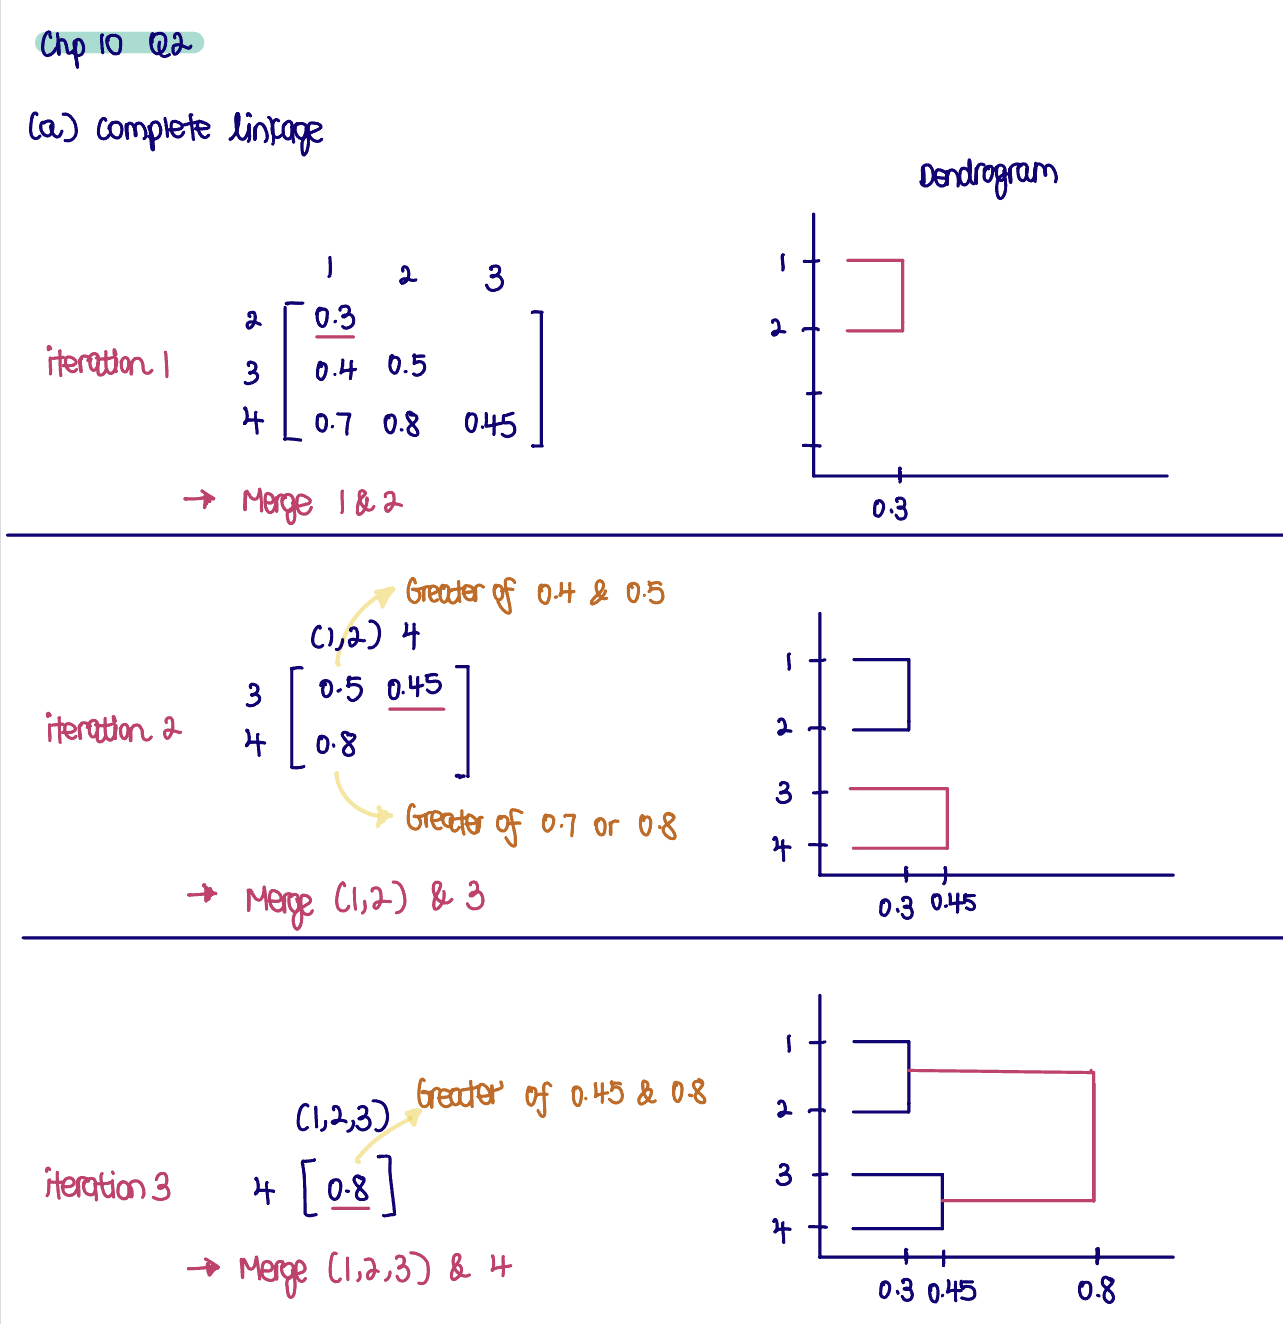 Chp 10 Q2
(a) complete linkage
Dendrogram
1 2 3
2 0.3
iteration 1
3 0.4 0.5
4 0.7 0.8 0.45
→ Merge 1 & 2
1
2
0.3
Greater of 0.4 & 0.5
(1,2) 4
3 0.5 0.45
iteration 2
4 0.8
Greater of 0.7 or 0.8
→ Merge (1,2) & 3
1
2
3
4
0.3 0.45
Greater of 0.45 & 0.8
(1,2,3)
iteration 3
4 [0.8]
→ Merge (1,2,3) & 4
1
2
3
4
0.3 0.45 0.8